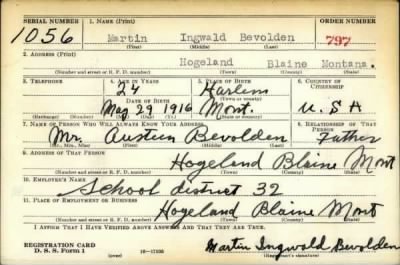 SERIAL NUMBER 1. NAME (Print) ORDER NUMBER
1056 Martin Ingwald Bevolden 797
(First) (Middle) (Last)
2. ADDRESS (Print)
Hogeland Blaine Montana.
(Number and street or R. F. D. number) (Town) (County) (State)
3. TELEPHONE 4. AGE IN YEARS 5. PLACE OF BIRTH 6. COUNTRY OF CITIZENSHIP
24 Harlem
DATE OF BIRTH (Town or county)
May 29 1916 Mont. U.S.A
(Exchange) (Number) (Mo.) (Day) (Yr.) (State or country)
7. NAME OF PERSON WHO WILL ALWAYS KNOW YOUR ADDRESS 8. RELATIONSHIP OF THAT PERSON
Mr. Austin Bevolden Father
(Mr., Mrs., Miss) (First) (Middle) (Last)
9. ADDRESS OF THAT PERSON
Hogeland Blaine Mont
(Number and street or R. F. D. number) (Town) (County) (State)
10. EMPLOYER'S NAME
School district 32
11. PLACE OF EMPLOYMENT OR BUSINESS
Hogeland Blaine Mont
(Number and street or R. F. D. number) (Town) (County) (State)
I AFFIRM THAT I HAVE VERIFIED ABOVE ANSWERS AND THAT THEY ARE TRUE.
REGISTRATION CARD
D. S. S. Form 1 (over) Martin Ingwald Bevolden
(Registrant's signature)